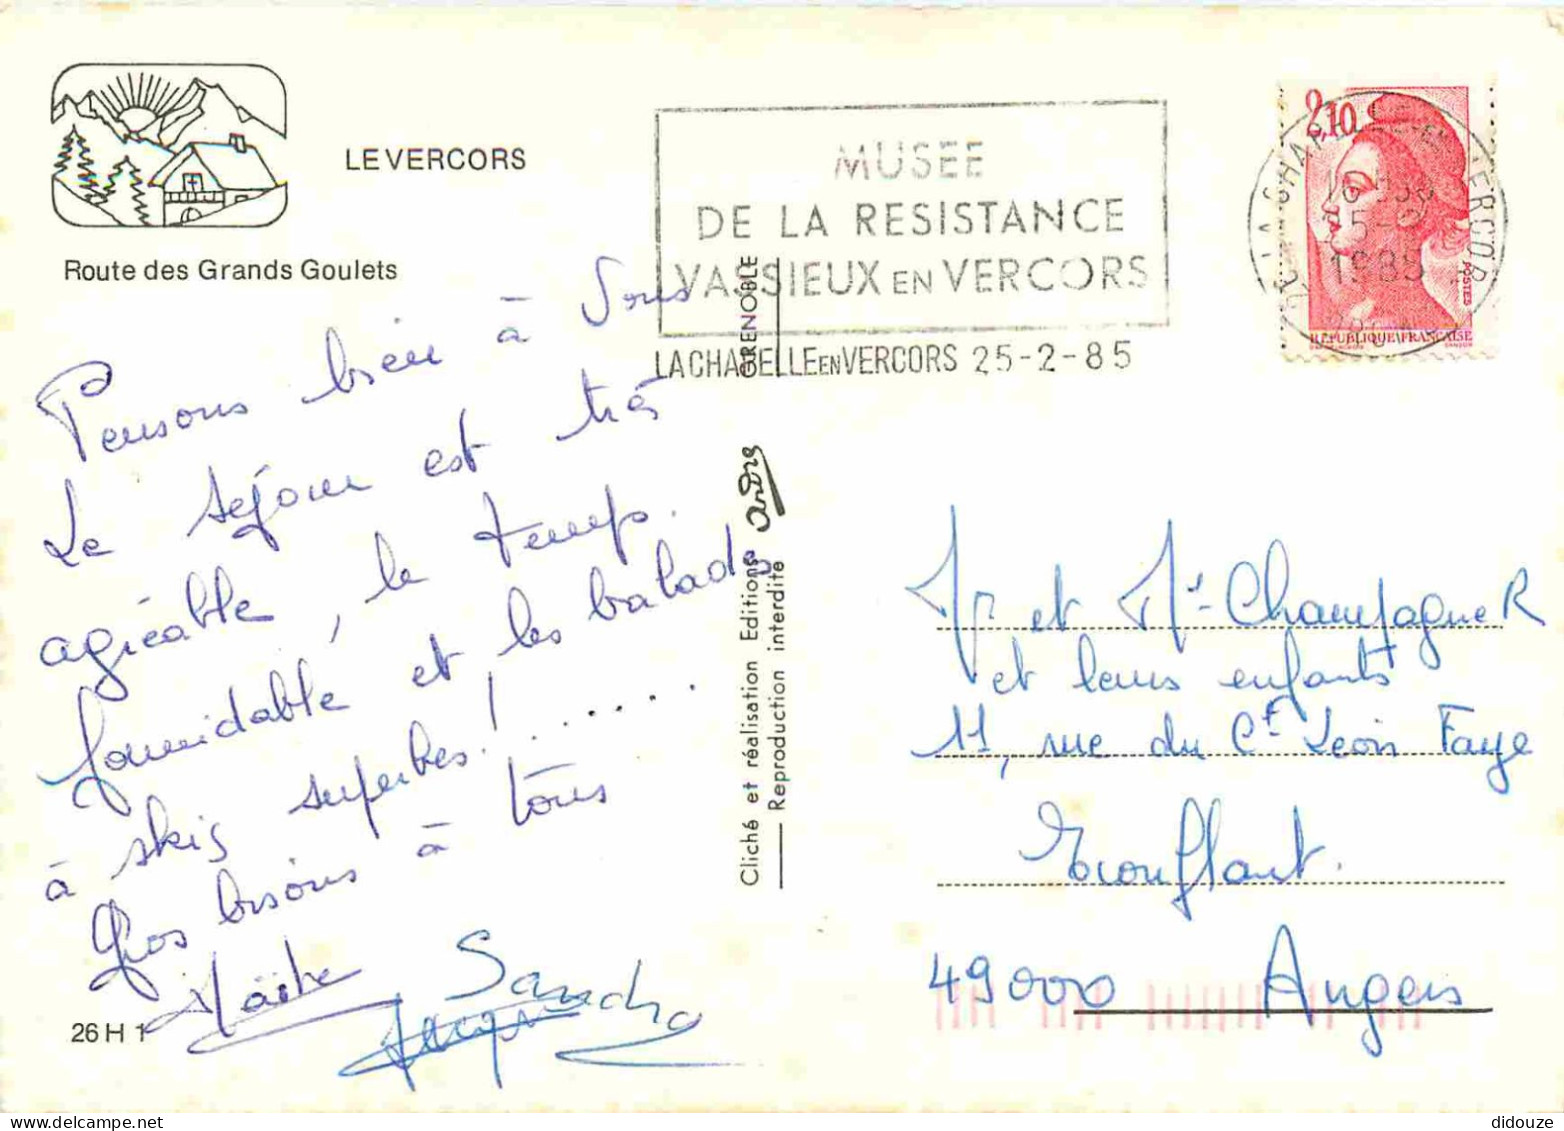 LE VERCORS
Route des Grands Goulets
MUSEE
DE LA RESISTANCE
VASSIEUX EN VERCORS
LA CHAPELLE EN VERCORS 25-2-85
2,10
1985
POSTES
REPUBLIQUE FRANÇAISE
Pensons bien à Vous
Le séjour est très
agréable, le temps
formidable et les balades
à skis superbes!......
Gros bisous à tous
Maïthe
Sandra
Jacques
26 H 1
GRENOBLE
André
Cliché et réalisation Editions
Reproduction interdite
Mr et Me Champagner
et leurs enfants
11, rue du Ct Léon Faye
Trouffant.
49000 Angers
didouze